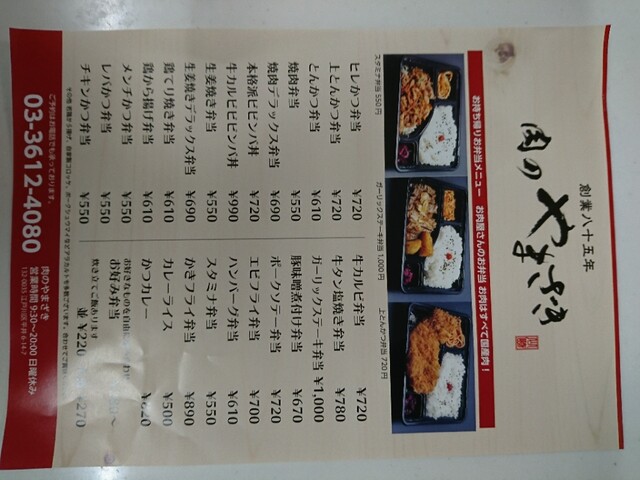 創業八十五年
肉のやまざき
お持ち帰りお弁当メニュー お肉屋さんのお弁当 お肉はすべて国産肉！
スタミナ弁当 550円
ガーリックステーキ弁当 1,000円
上とんかつ弁当 720円
ヒレかつ弁当 ¥720
上とんかつ弁当 ¥720
とんかつ弁当 ¥610
焼肉弁当 ¥550
焼肉デラックス弁当 ¥690
本格派ビビン丼 ¥720
牛カルビビビンバ丼 ¥990
生姜焼き弁当 ¥550
生姜焼きデラックス弁当 ¥690
鶏てり焼き弁当 ¥610
鶏から揚げ弁当 ¥610
メンチかつ弁当 ¥550
レバかつ弁当 ¥550
チキンかつ弁当 ¥550
牛カルビ弁当 ¥720
牛タン塩焼き弁当 ¥780
ガーリックステーキ弁当 ¥1,000
豚味噌煮付け弁当 ¥670
ポークソテー弁当 ¥720
エビフライ弁当 ¥700
ハンバーグ弁当 ¥610
スタミナ弁当 ¥550
かきフライ弁当 ¥890
カレーライス ¥500
かつカレー
お好み弁当
お好きなものを自由に
炊き立てご飯あります
並 ¥220
270
ご予約はお電話でも承っております。
03-3612-4080
肉のやまざき
営業時間 9:30〜20:00 日曜休み